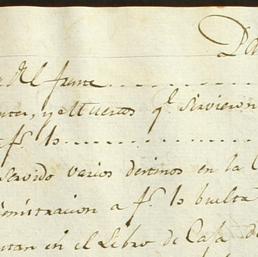 Da
Del frente
y Muertos q.e sirvieron
a f.s 10
servido varios destinos en la C
ministracion a f.s 10 buelta
tan en el Libro de Casa de